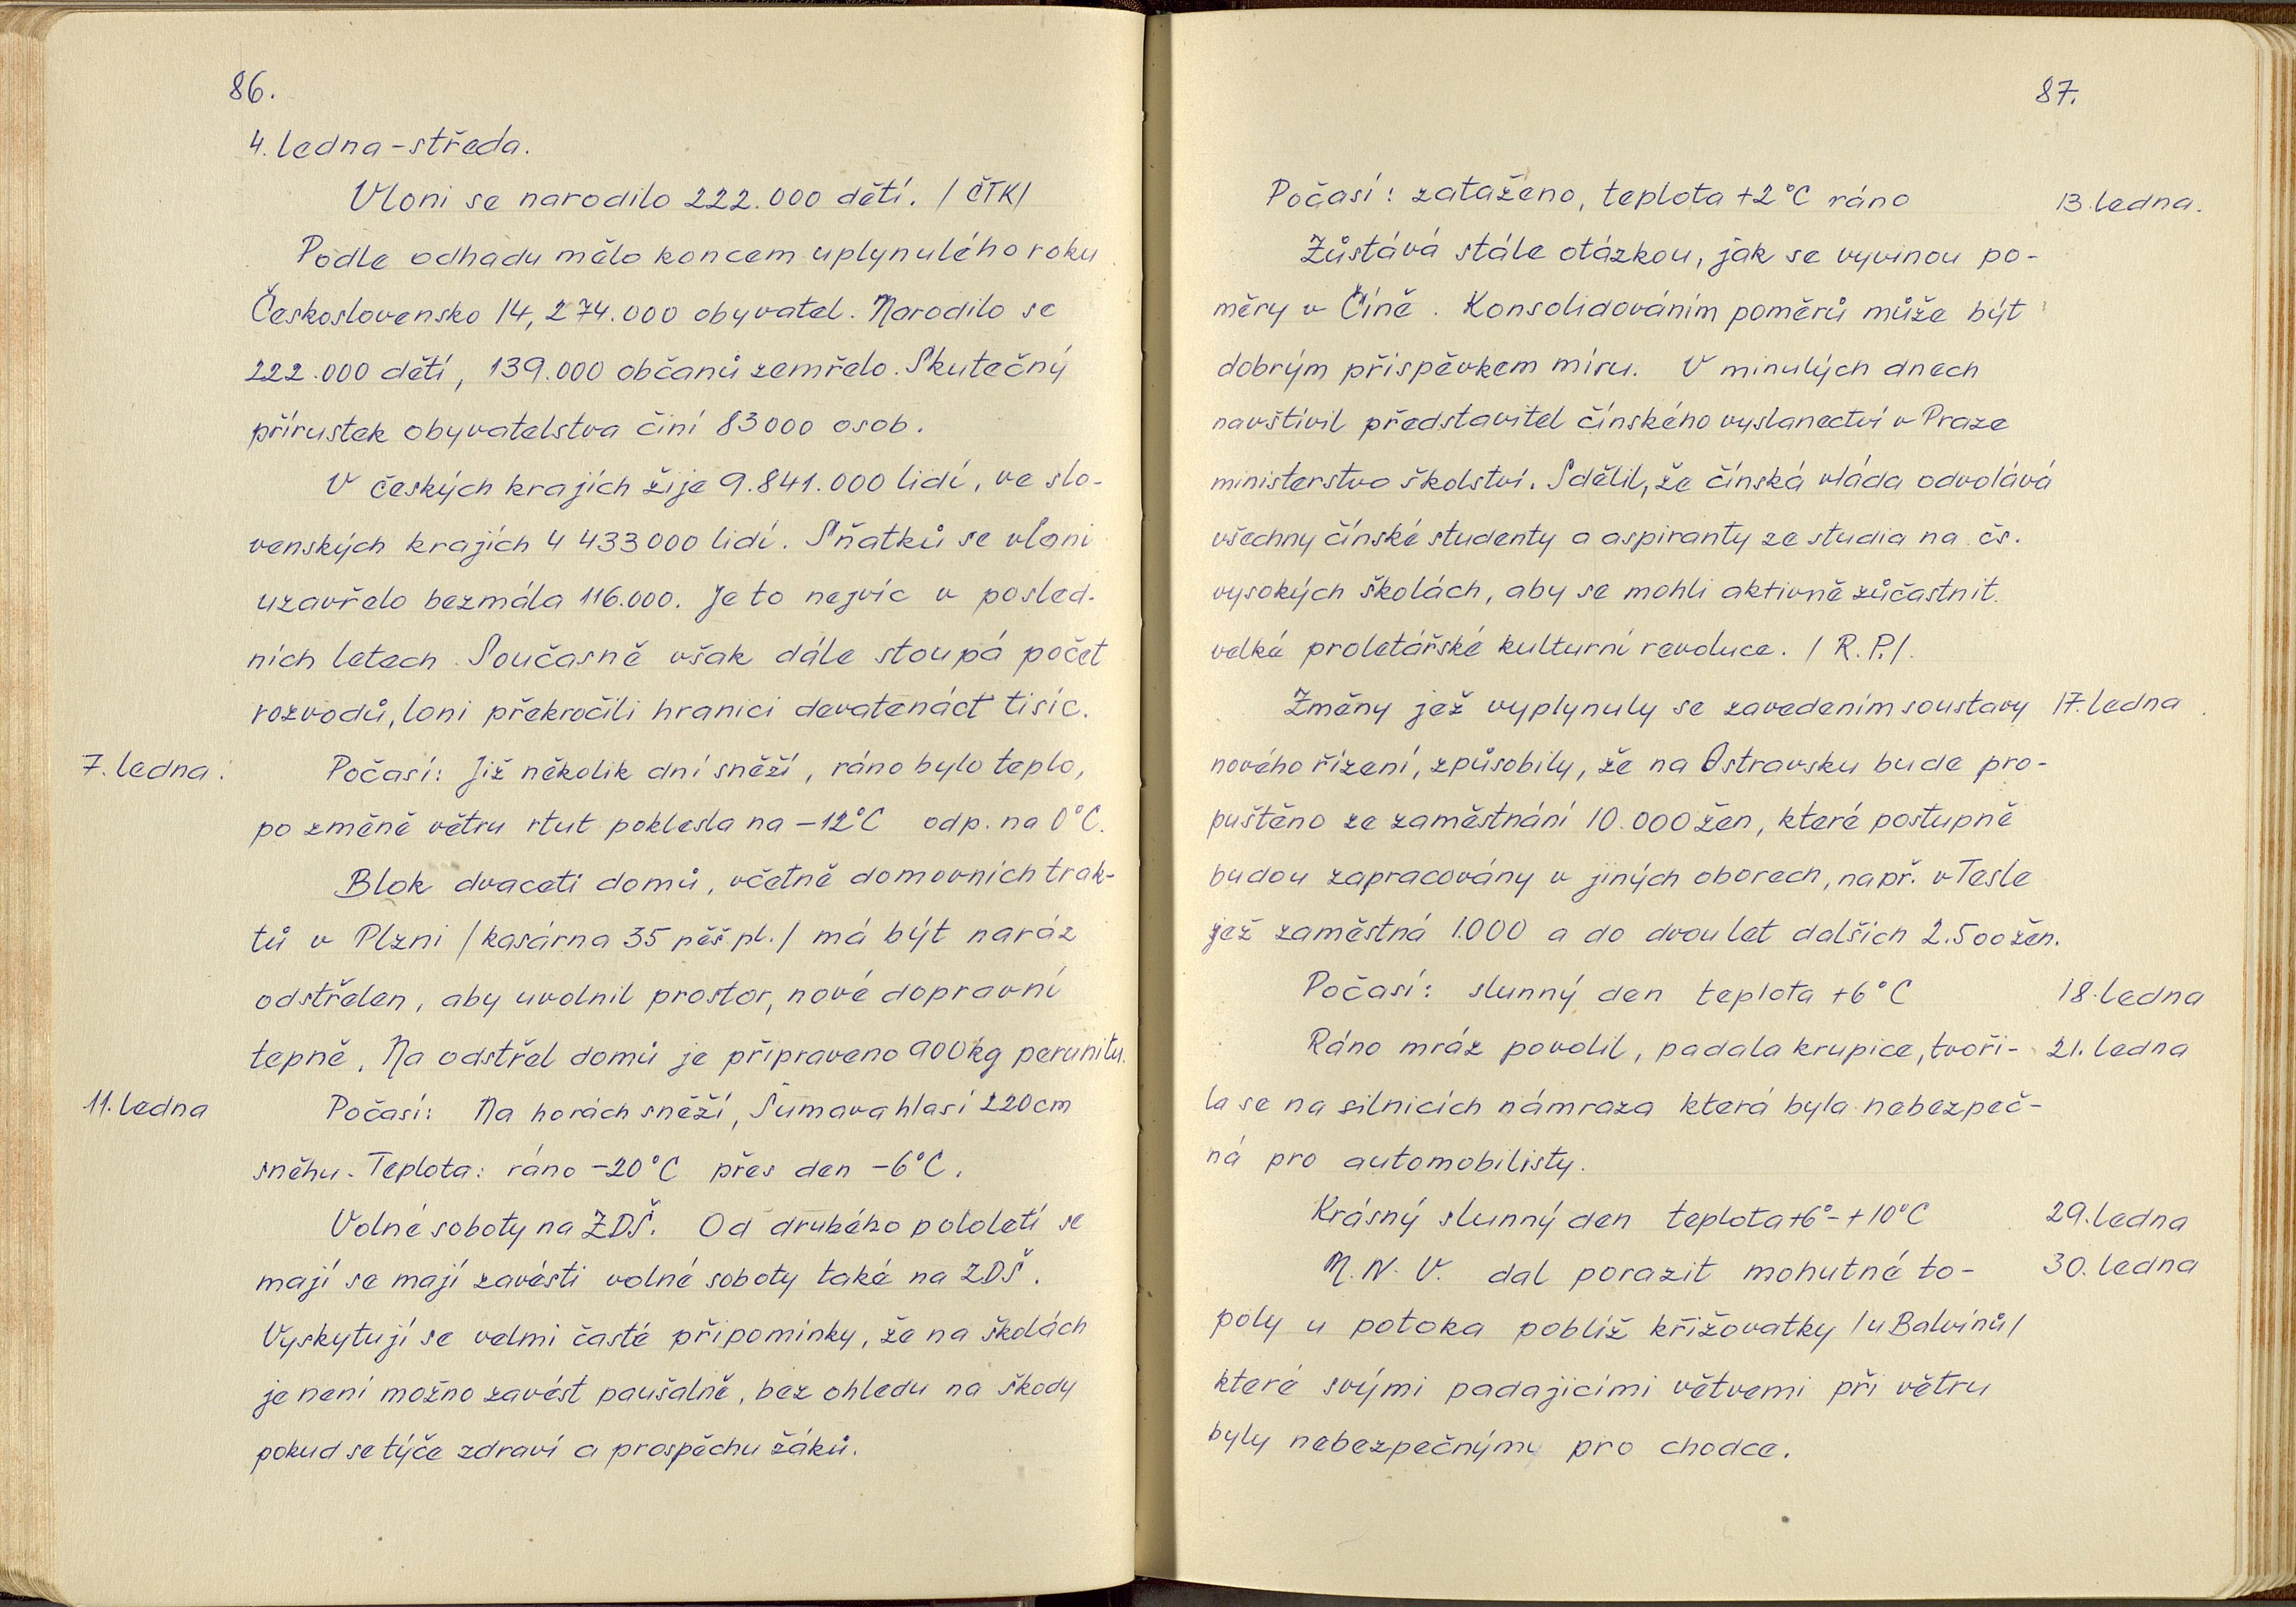 86.
4. ledna - středa.
Vloni se narodilo 222.000 dětí. / ČTK/
Podle odhadu mělo koncem uplynulého roku
Československo 14,274.000 obyvatel. Narodilo se
222.000 dětí, 139.000 občanů zemřelo. Skutečný
přírustek obyvatelstva činí 83000 osob.
V českých krajích žije 9.841.000 lidí, ve slo-
venských krajích 4 433000 lidí. Sňatků se vloni
uzavřelo bezmála 116.000. Je to nejvíc v posled-
ních letech. Současně však dále stoupá počet
rozvodů, loni překročili hranici devatenáct tisíc.
7. ledna. Počasí: Již několik dní sněží, ráno bylo teplo,
po změně větru rtut poklesla na -12°C odp. na 0°C.
Blok dvaceti domů, včetně domovních trak-
tů v Plzni /kasárna 35 pěš. pl./ má být naráz
odstřelen, aby uvolnil prostor, nové dopravní
tepně. Na odstřel domů je připraveno 900kg perunitu.
11. ledna Počasí: Na horách sněží, Šumava hlasí 220cm
sněhu. Teplota: ráno -20°C přes den -6°C.
Volné soboty na ZDŠ. Od druhého pololetí se
mají se mají zavésti volné soboty také na ZDŠ.
Vyskytují se velmi časté připomínky, že na školách
je není možno zavést paušalně, bez ohledu na škody
pokud se týče zdraví a prospěchu žáků.
87.
Počasí: zataženo, teplota +2°C ráno 13. ledna.
Zůstává stále otázkou, jak se vyvinou po-
měry v Číně. Konsolidováním poměrů může být
dobrým příspěvkem míru. V minulých dnech
navštívil představitel čínského vyslanectví v Praze
ministerstvo školství. Sdělil, že čínská vláda odvolává
všechny čínské studenty a aspiranty ze studia na čs.
vysokých školách, aby se mohli aktivně zůčastnit
velké proletářské kulturní revoluce. / R.P./.
Změny jež vyplynuly se zavedením soustavy 17. ledna
nového řízení, způsobily, že na Ostravsku bude pro-
puštěno ze zaměstnání 10.000 žen, které postupně
budou zapracovány v jiných oborech, např. v Tesle
jež zaměstná 1.000 a do dvou let dalších 2.500 žen.
Počasí: slunný den teplota +6°C 18. ledna
Ráno mráz povolil, padala krupice, tvoři- 21. ledna
la se na silnicích námraza která byla nebezpeč-
ná pro automobilisty.
Krásný slunný den teplota +6°- +10°C 29. ledna
M.N.V. dal porazit mohutné to- 30. ledna
poly u potoka poblíž křižovatky /u Balvínů/
které svými padajícími větvemi při větru
byly nebezpečnými pro chodce.